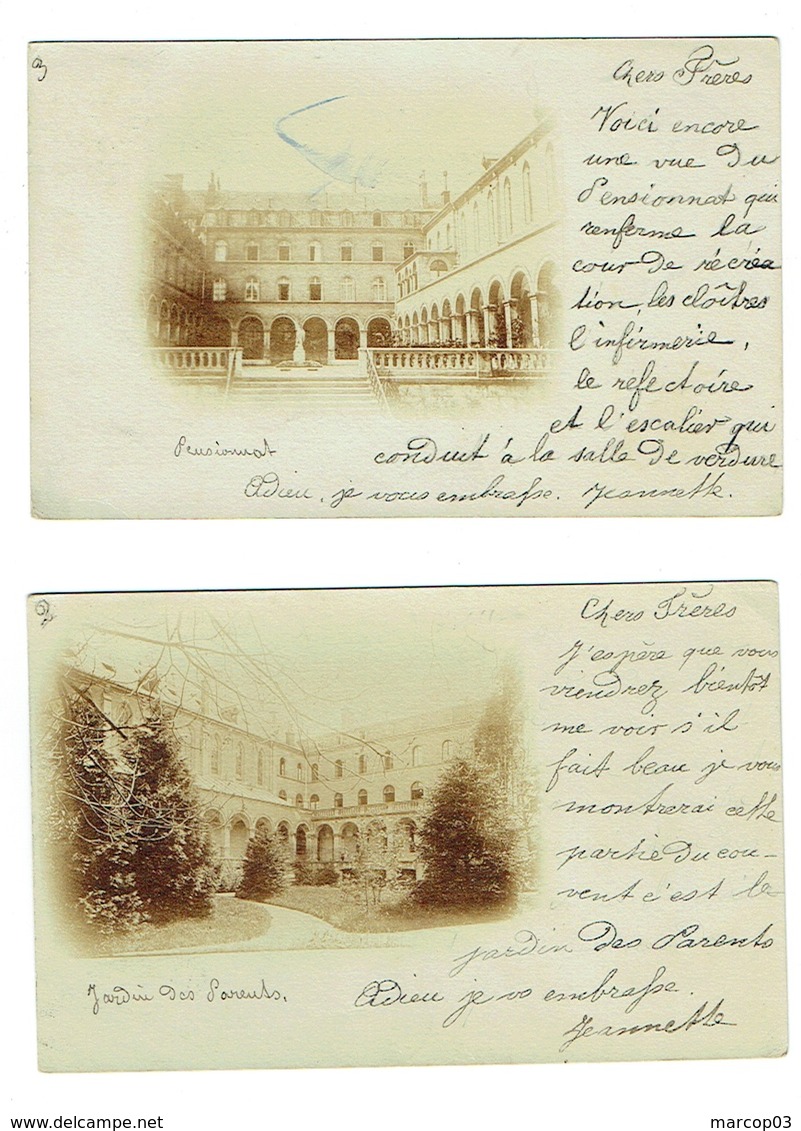 3
Chers Frères
Voici encore
une vue du
Pensionnat qui
renferme la
cour de récréa
tion, les cloîtres
l'infirmerie,
le refectoire
et l'escalier qui
conduit à la salle de verdure
Adieu, je vous embrasse. Jeannette.
Pensionnat
2
Chers Frères
J'espère que vous
viendrez bientôt
me voir s'il
fait beau je vous
montrerai cette
partie du cou-
vent c'est le
jardin des Parents
Adieu je vs embrasse.
Jeannette
Jardin des Parents.
www.delcampe.net
marcop03